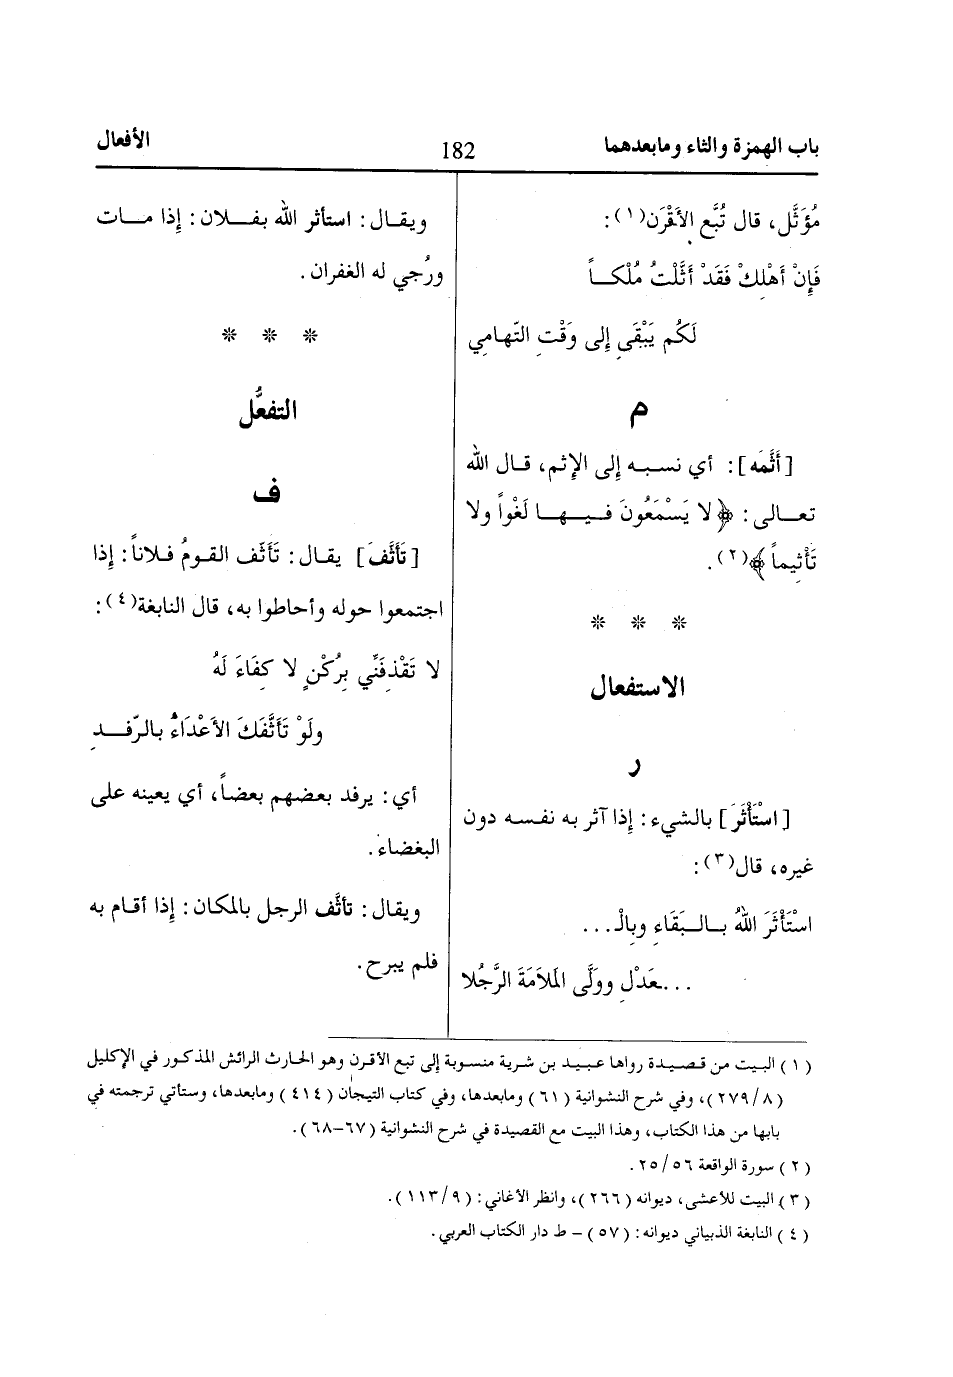 باب الهمزة والثاء ومابعدهما
182
الأفعال
مُؤَثَّل، قال تُبَّع الأَقْرَن(١):
فَإِنْ أَهْلِكْ فَقَدْ أَثَّلْتُ مُلْكـاً
لَكُم يَبْقَى إلى وَقْتِ التّهامِي
م
[أَثَّمَه]: أي نسبه إلى الإثم، قال الله
تعـالى: ﴿لا يَسْمَعُونَ فـيـهـا لَغْواً ولا
تَأْثيماً﴾(٢).
* * *
الاستفعال
ر
[اسْتَأْثَرَ] بالشيء: إذا آثر به نفسه دون
غيره، قال(٣):
اسْتَأْثَرَ اللهُ بـالـبَقَاءِ وبِالْـ...
...ـعَدْلِ ووَلَّى المَلاَمَةَ الرَّجُلا
ويقـال: استأثر الله بفـلان: إذا مـات
ورُجي له الغفران.
* * *
التفعُّل
ف
[تَأَثَّفَ] يقال: تَأَثَّف القـومُ فـلاناً: إذا
اجتمعوا حوله وأحاطوا به، قال النابغة(٤):
لا تَقْذِفَنِّي بِرُكْنٍ لا كِفَاءَ لَهُ
ولَوْ تَأَثَّفَكَ الأَعْدَاءُ بالرِّفـد
أي: يرفد بعضهم بعضاً، أي يعينه على
البغضاء.
ويقال: تأثَّف الرجل بالمكان: إذا أقـام به
فلم يبرح.
(١) البيت من قصيدة رواها عبيد بن شرية منسوبة إلى تبع الأقرن وهو الحارث الرائش المذكور في الإكليل
(٨/٢٧٩)، وفي شرح النشوانية (٦١) ومابعدها، وفي كتاب التيجان (٤١٤) ومابعدها، وستأتي ترجمته في
بابها من هذا الكتاب، وهذا البيت مع القصيدة في شرح النشوانية (٦٧-٦٨).
(٢) سورة الواقعة ٥٦/٢٥.
(٣) البيت للأعشى، ديوانه (٢٦٦)، وانظر الأغاني: (٩/١١٣).
(٤) النابغة الذبياني ديوانه: (٥٧) – ط دار الكتاب العربي.